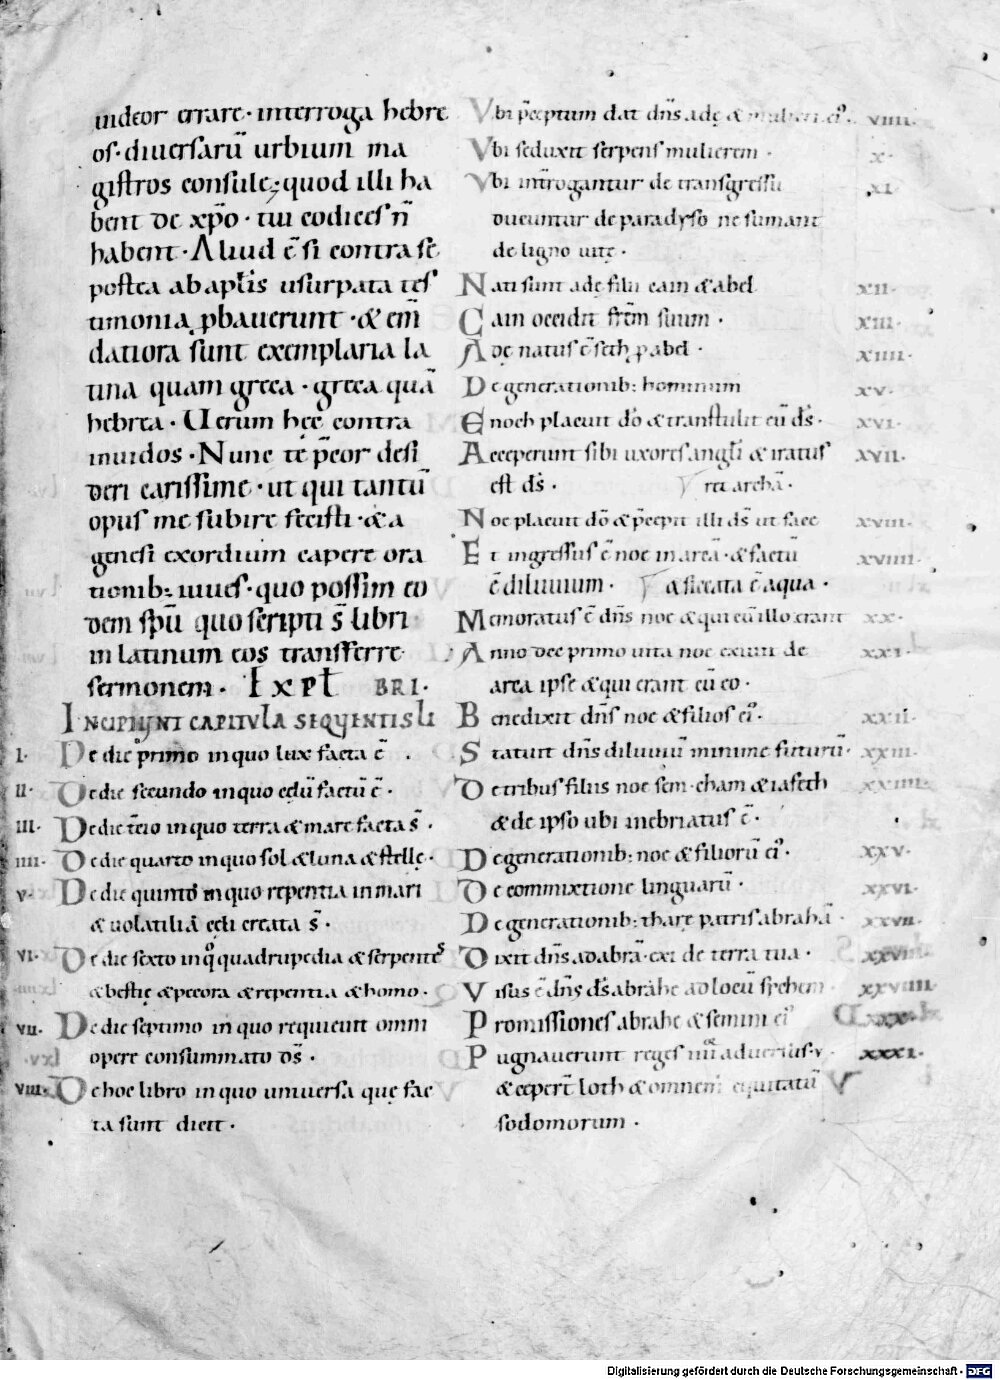 uideor errare · interroga hebre
os · diuersarū urbium ma
gistros consule; quod illi ha
bent de xp̄o · tui codices n̄
habent · Aliud ē si contra se
postea ab apt̄lis usurpata tes
timonia ꝓbauerunt · & em̄
datiora sunt exemplaria la
tina quam greca · greca quā
hebrea · Uerum hęc contra
inuidos · Nunc te p̄cor desi
deri carissime · ut qui tantū
opus me subire fecisti · & a
genesi exordium capere ora
tionib: iuues · quo possim eo
dem sp̄u quo scripti s̄ libri
in latinum eos transferre
sermonem · EXPŁ
INCIPIUNT CAPITVLA SEQUENTIS LI
BRI ·
I · De die primo in quo lux facta ē ·
II · De die secundo in quo cęlū factū ē ·
III · De die t̄cio in quo terra & mare facta s̄ ·
IIII · De die quarto in quo sol & luna & stellę ·
V · De die quinto in quo reptentia in mari
& uolatiliā cęli creata s̄ ·
VI · De die sexto in q̊ quadrupedia & serpentes
& bestię & pecora & reptentia & homo ·
VII · De die septimo in quo requieuit omni
opere consummato ds̄ ·
VIII · De hoc libro in quo uniuersa quę fac
ta sunt dicit ·
Vbi p̄ceptum dat dn̄s adę & mulieri ei᾽ · VIIII ·
Vbi seduxit serpens mulierem · X ·
Vbi int̄rogantur de transgressu XI ·
ducuntur de paradyso ne sumant
de ligno uitę ·
Nati sunt adę filii cain & abel XII ·
Cain occidit frm̄ suum · XIII ·
Adę natus ē seth ꝓ abel · XIIII ·
De generationib: hominum XV ·
Enoch placuit dō & transtulit eū ds̄ · XVI ·
Acceperunt sibi uxores angł̄i & iratus XVII ·
est ds̄ · rci archā ·
Noe placuit dō & p̄cepit illi ds̄ ut face XVIII ·
Et ingressus ē noe in arcā · & factū XVIIII ·
ē diluuium · a siccata ē aqua ·
Memoratus ē dn̄s noe & qui cū illo erant XX ·
Anno dcc primo uita noe exiuit de XXI ·
arca ipse & qui erant cū eo ·
Benedixit dn̄s noe & filios ei᾽ · XXII ·
Statuit dn̄s diluuiū minime futurū · XXIII ·
De tribus filiis noe sem · cham & iafeth XXIIII ·
& de ipso ubi inebriatus ē ·
De generationib: noe & filiorū ei᾽ · XXV ·
De commixtione linguarū · XXVI ·
De generationib: tharę patris abrahā · XXVII ·
Dixit dn̄s ad abrā · exi de terra tua · XXVIII ·
Visus ē dn̄s ds̄ abrahe ad locū sychem · XXVIIII ·
Promissiones abrahe & semini ei᾽ XXX ·
Pugnauerunt reges IIII aduersus · V · XXXI ·
& cepert̄ loth & omnem equitatū
sodomorum ·
Digitalisierung gefördert durch die Deutsche Forschungsgemeinschaft - DFG